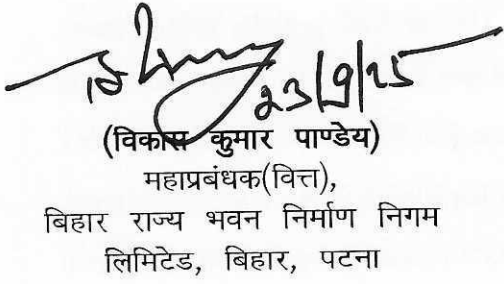 23/9/25
(विकास कुमार पाण्डेय)
महाप्रबंधक(वित्त),
बिहार राज्य भवन निर्माण निगम
लिमिटेड, बिहार, पटना